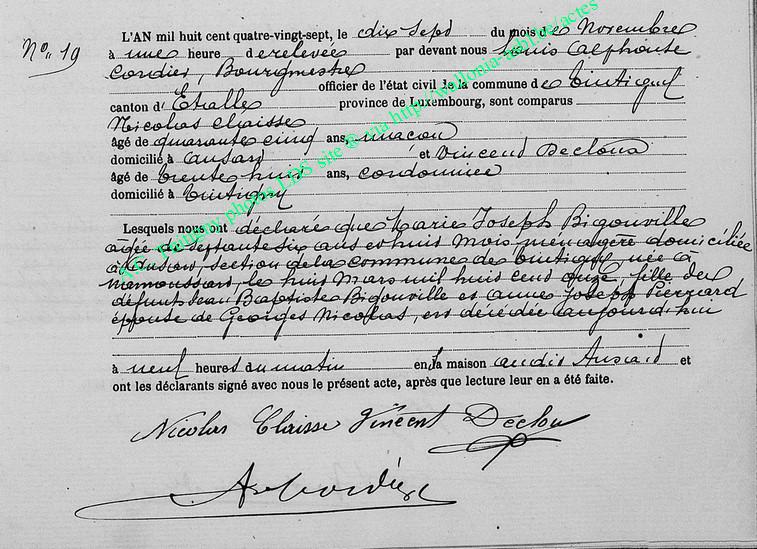 N°. 19
L'AN mil huit cent quatre-vingt-sept, le dix sept du mois de Novembre
à une heure de relevée par devant nous Louis Alphonse
Cordier, Bourgmestre
officier de l'état civil de la commune de Tintigny
canton d'Etalle province de Luxembourg, sont comparus
Nicolas Claisse
âgé de quarante cinq ans, maçon
domicilié à Ansart et Vincend Declou
âgé de trente huit ans, cordonnier
domicilié à Tintigny
Lesquels nous ont déclaré que Marie Joseph Bigonville
agée de septante six ans et huit mois menagère domiciliée
à Ansart, section de la commune de Tintigny, née à
le huit Mars mil huit cent onze, fille de
défunt Jean Baptiste Bigonville et Anne Joseph Pierrard
épouse de Georges Nicolas, est décédée aujourd'hui
à neuf heures du matin en sa maison audit Ansart et
ont les déclarants signé avec nous le présent acte, après que lecture leur en a été faite.
Nicolas Claisse Vincent Declou
A.C. Tintigny photos LDS site ® via http://wallonia-asbl.be/actes